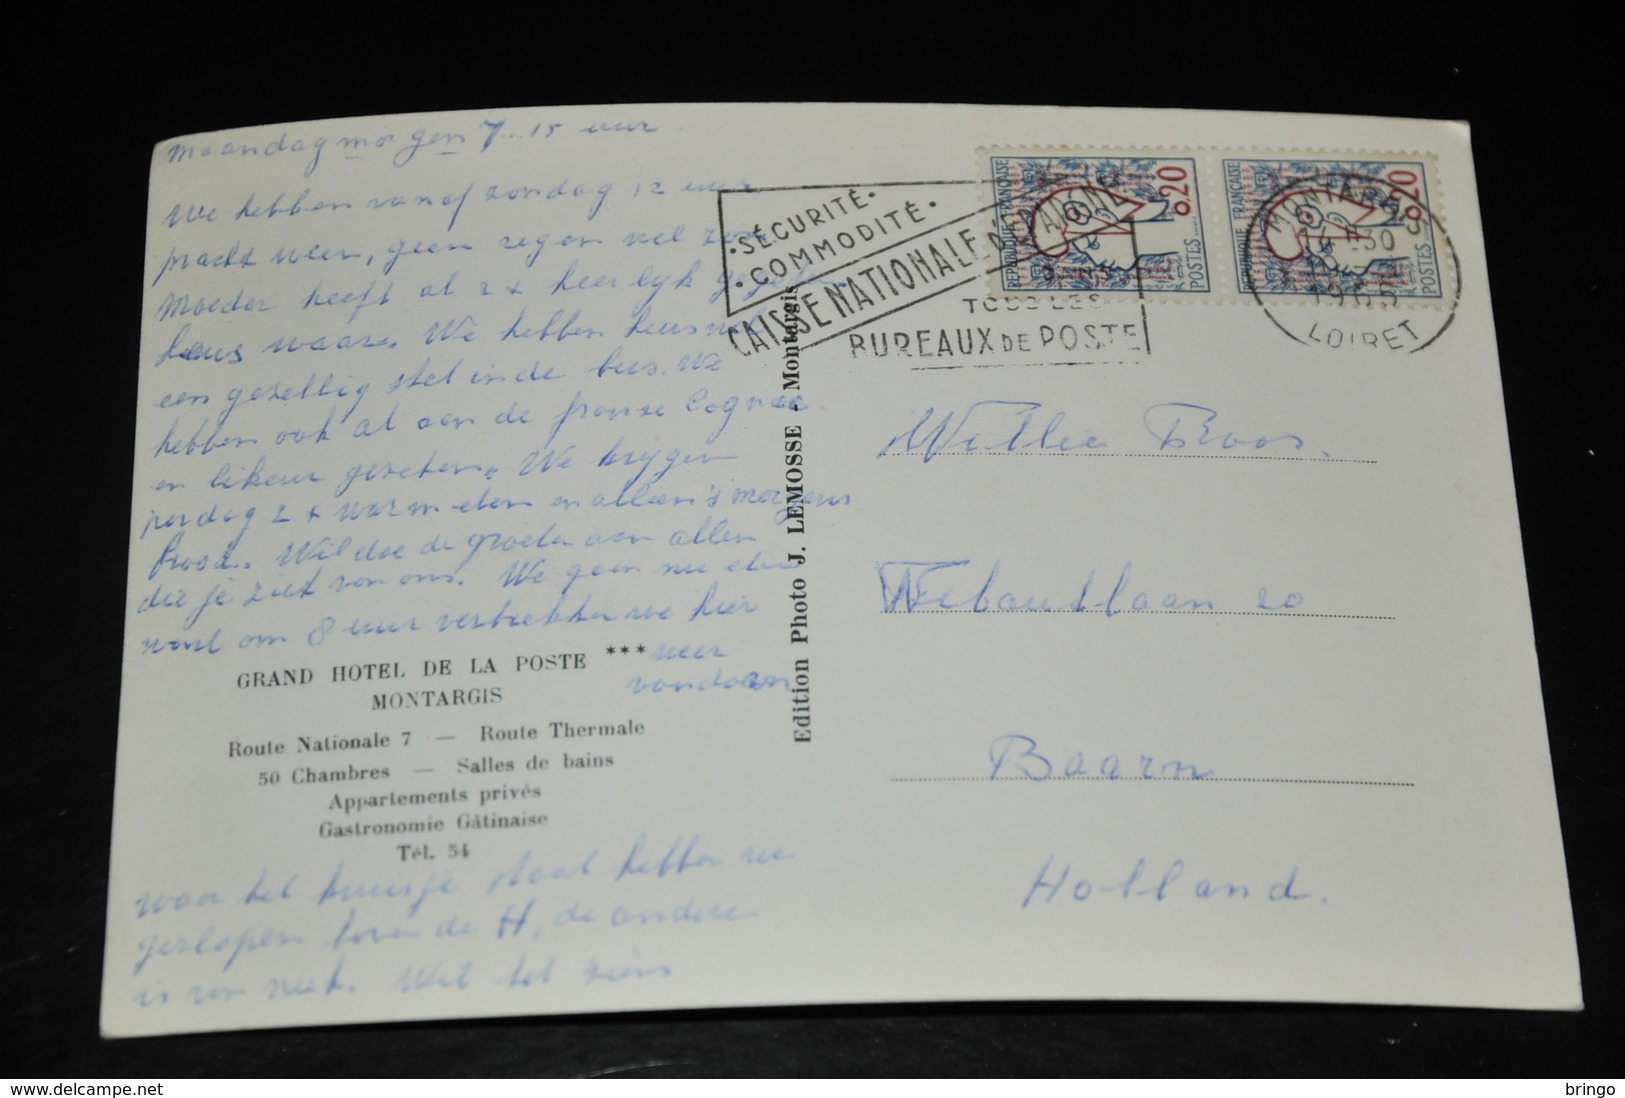 maandag morgen 7.15 uur.
We hebben vanaf zondag 12 uur
pracht weer, geen regen vel zon
Moeder heeft al 2 x heerlijk
waar. We hebben heus
een gezellig stel in de bus. We
hebben ook al aan de franse Cognac.
en likeur gezeten. We krijgen
per dag 2 x warm eten en alleen 's morgens
brood. Wil doe de groeten aan allen
die je ziet van ons. We gaan nu eten
want om 8 uur vertrekken we hier
weer
vandaan
GRAND HOTEL DE LA POSTE ***
MONTARGIS
Route Nationale 7 — Route Thermale
50 Chambres — Salles de bains
Appartements privés
Gastronomie Gâtinaise
Tél. 54
waar het kruisje staat hebben we
geslapen boven de H, de andere
is er niet. Wil tot ziens
Edition Photo J. LEMOSSE - Montargis
·SÉCURITÉ·
·COMMODITÉ·
CAISSE NATIONALE D'ÉPARGNE
TOUS LES
BUREAUX DE POSTE
REPUBLIQUE FRANÇAISE
0,20
POSTES
REPUBLIQUE FRANÇAISE
0,20
POSTES
MONTARGIS
LOIRET
Willie Roos.
20
Baarn
Holland.
bringo